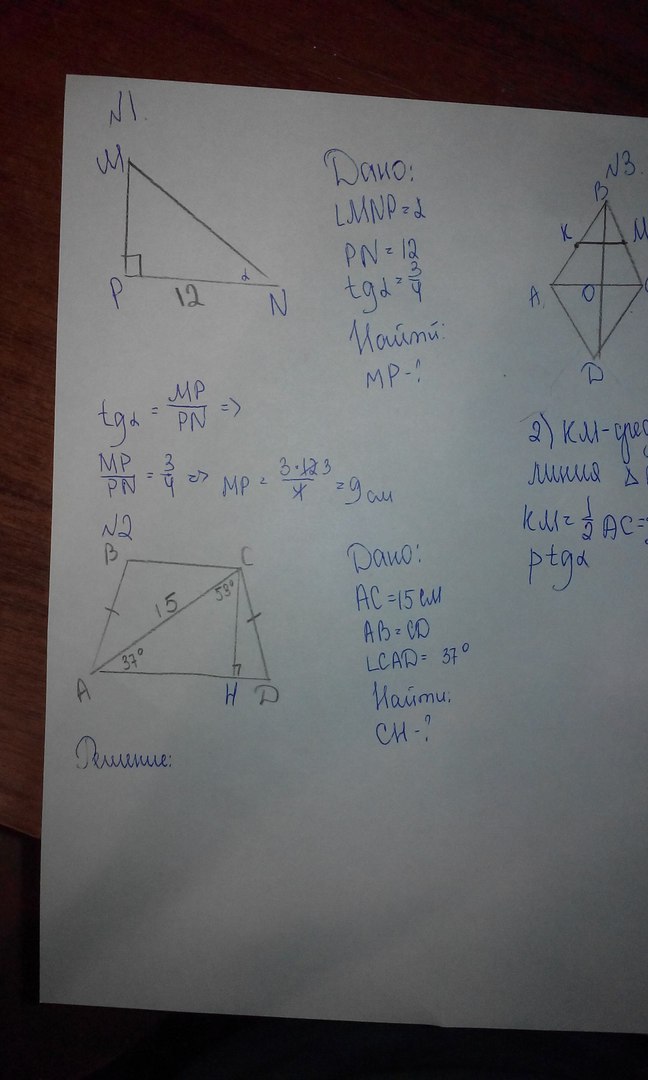 N1.
M
P
12
α
N
Дано:
∠MNP = α
PN = 12
tgα = 3/4
Найти:
MP - ?
tgα = MP/PN =>
MP/PN = 3/4 => MP = 3·12 3/4 = 9 см
N2
B
C
15
53°
37°
A
H
D
Дано:
AC = 15 см
AB = CD
∠CAD = 37°
Найти:
CH - ?
Решение:
N3.
B
K
M
A
O
D
2) KM -
линия Δ
KM = 1/2 AC =
р tgα